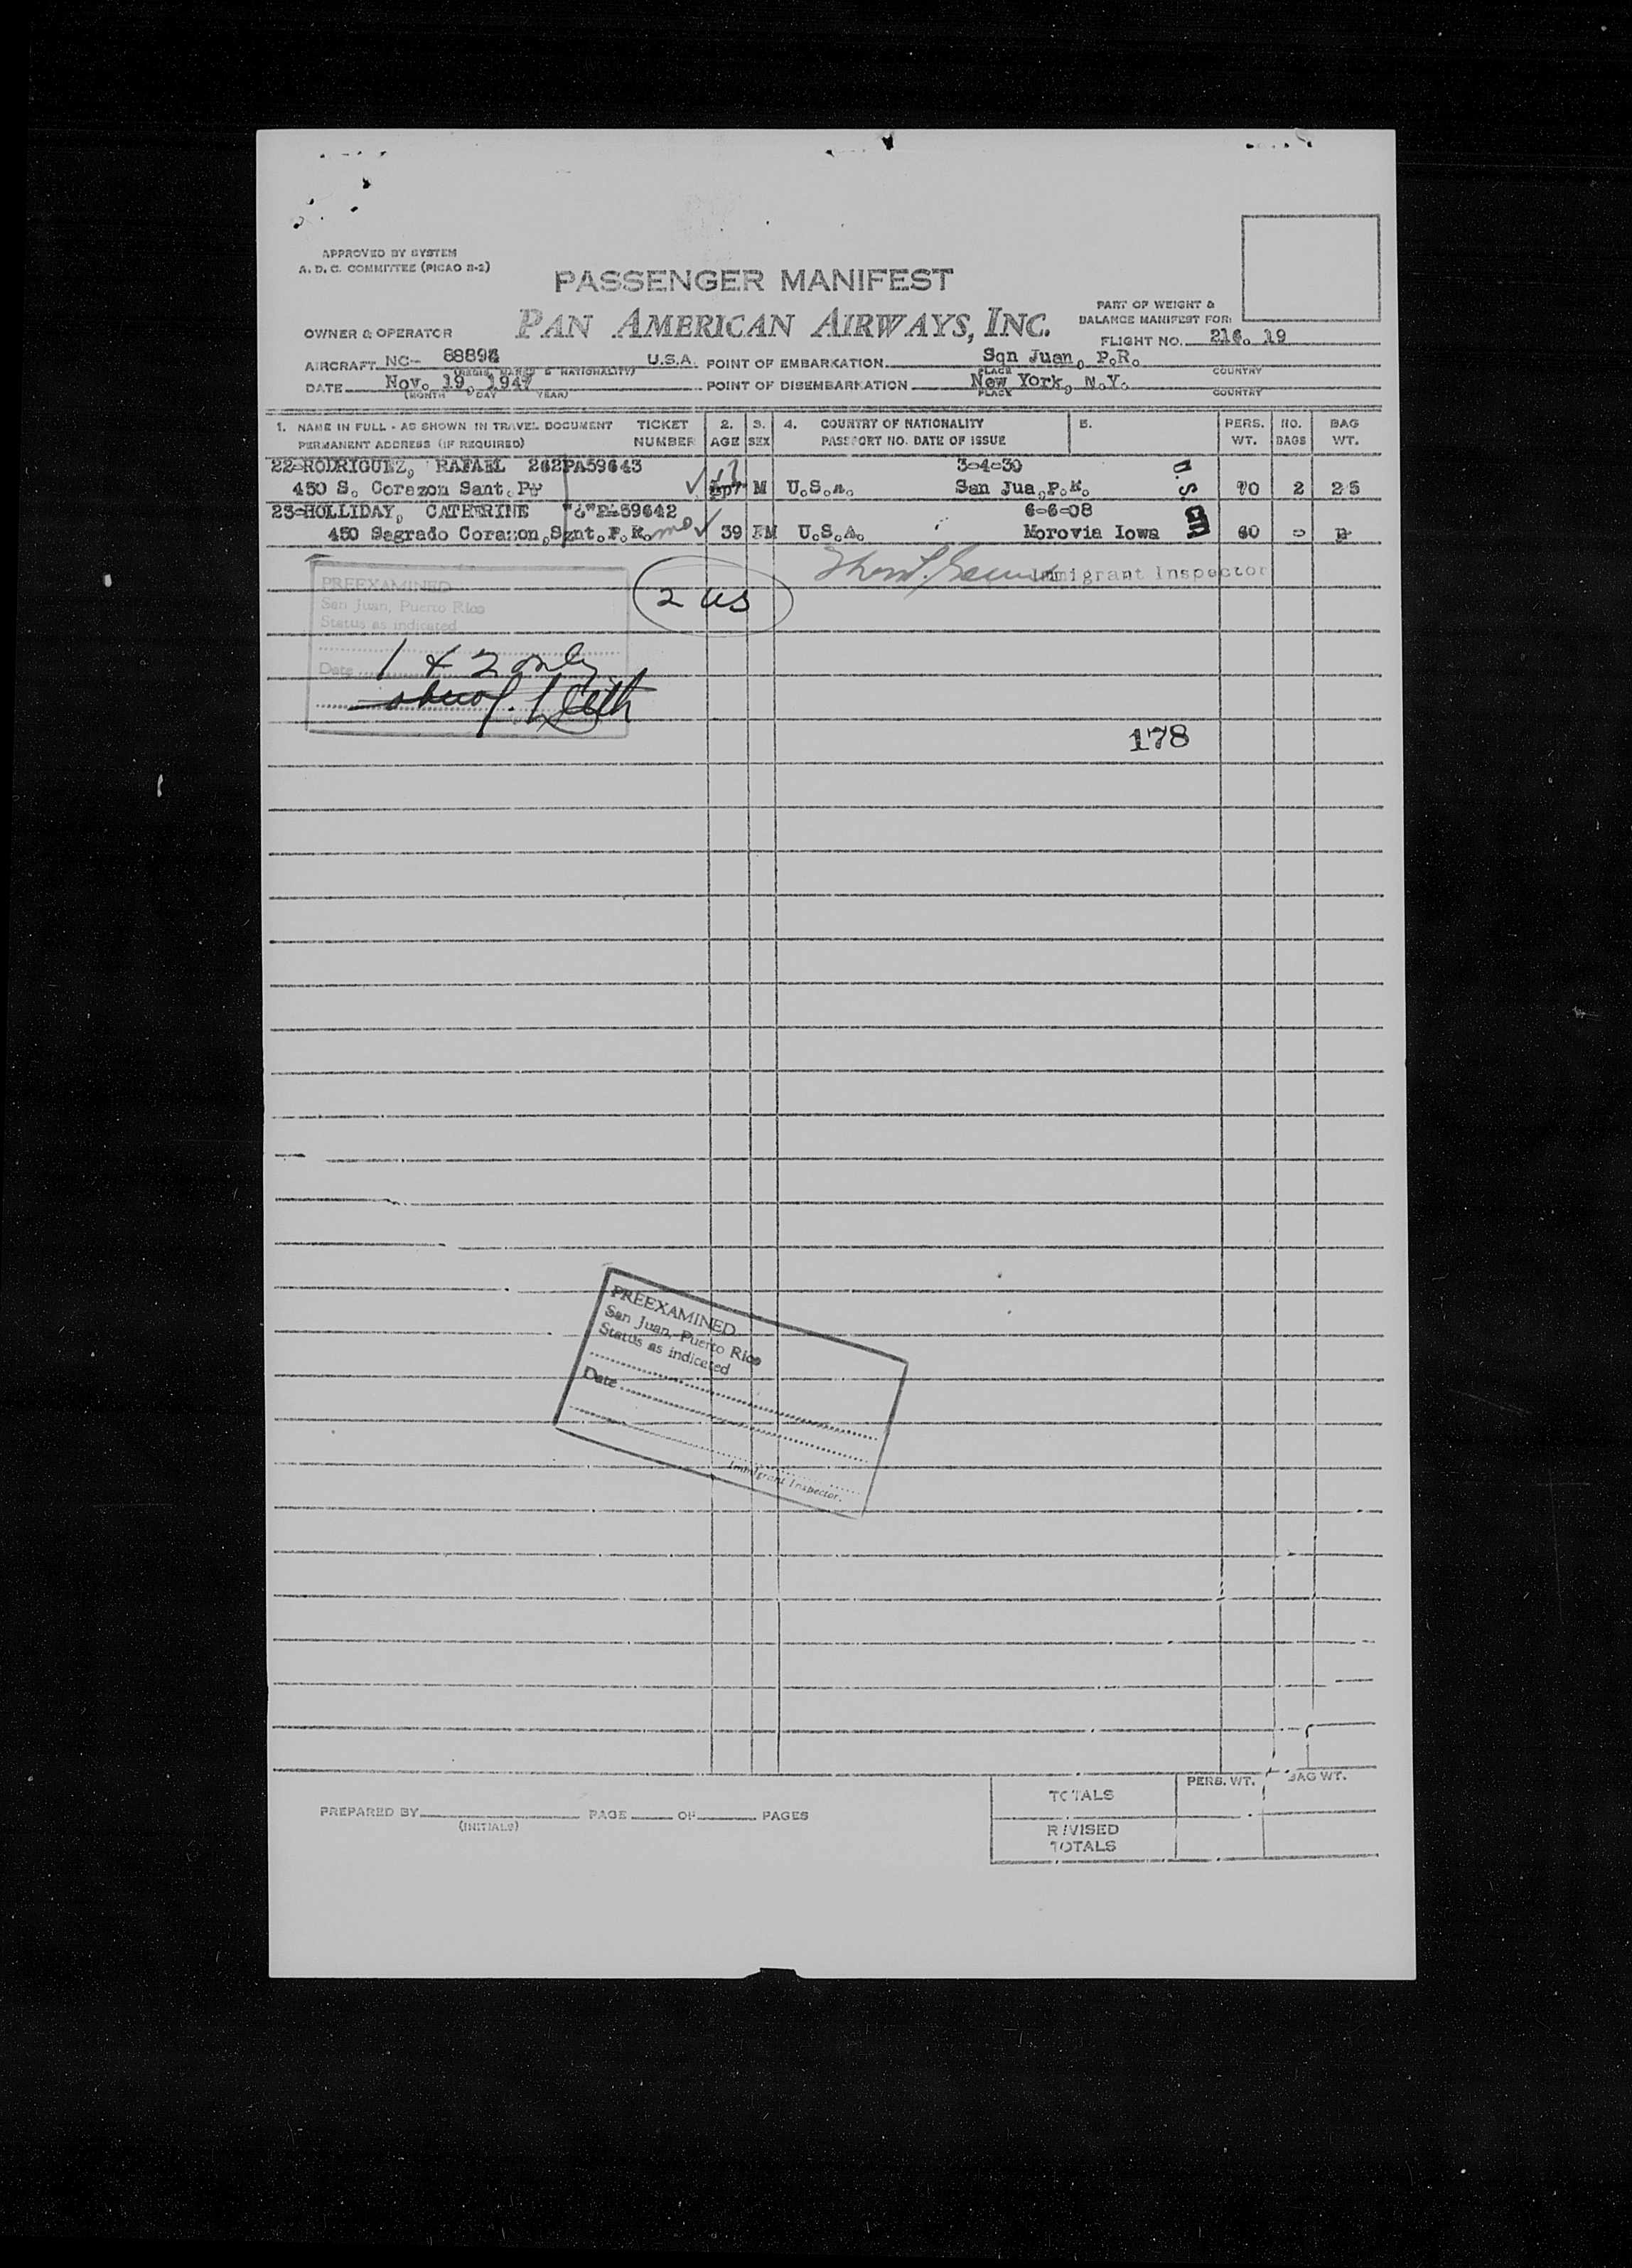 APPROVED BY SYSTEM
A. D. C. COMMITTEE (PICAO S-2)
PASSENGER MANIFEST
PAN AMERICAN AIRWAYS, INC.
PART OF WEIGHT &
BALANCE MANIFEST FOR:
OWNER & OPERATOR
FLIGHT NO. 216. 19
AIRCRAFT NC- U.S.A. POINT OF EMBARKATION Sqn Juan, P.R.
(REGIS. MARKS & NATIONALITY) PLACE COUNTRY
DATE Nov. 19, 1947 POINT OF DISEMBARKATION New York, N.Y.
(MONTH DAY YEAR) PLACE COUNTRY
1. NAME IN FULL - AS SHOWN IN TRAVEL DOCUMENT TICKET 2. 3. 4. COUNTRY OF NATIONALITY 5. PERS. NO. BAG
PERMANENT ADDRESS (IF REQUIRED) NUMBER AGE SEX PASSPORT NO. DATE OF ISSUE WT. BAGS WT.
22-RODRIGUEZ, RAFAEL 262PA59643 3-4-30
450 S. Corazon Sant. M U.S.A. San Jua,P.R. U.S. 70 2 25
23-HOLLIDAY, CATHERINE 59642 6-6-08
450 Sagrado Corazon, Sant. P.R. 39 FM U.S.A. Morovia Iowa 60
Immigrant Inspector
PREEXAMINED
San Juan, Puerto Rico
Status as indicated
2 US
Date 1 & 2 only
178
PREEXAMINED
San Juan, Puerto Rico
Status as indicated
Date
Immigrant Inspector.
PERS. WT. BAG WT.
TOTALS
PREPARED BY PAGE OF PAGES
(INITIALS)
REVISED
TOTALS